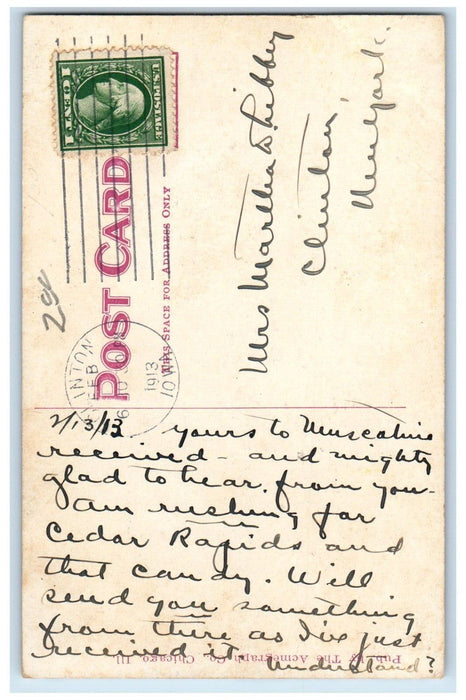 U.S. POSTAGE
1 CENT 1
POST CARD
THIS SPACE FOR ADDRESS ONLY
25¢
CLINTON
FEB
6
1913
IOWA
Mrs Martha Libbey
Clinton,
New York.
2/13/13 yours to Muscatine
received - and mighty
glad to hear from you -
am rushing for
Cedar Rapids and
that candy. Will
send you something
from there as I've just
received it understand?
Pub. by The Acmegraph Co., Chicago, Ill.